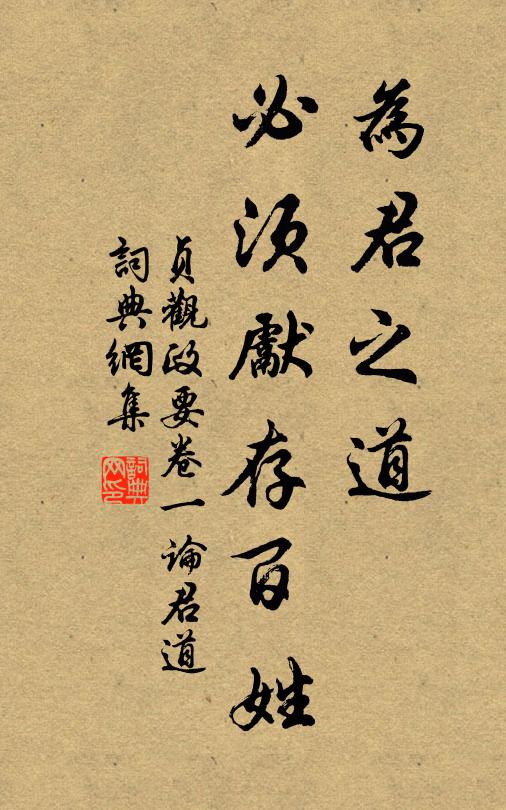 為君之道
必須獻存百姓
貞觀政要卷一論君道
詞典網集
詞典網印